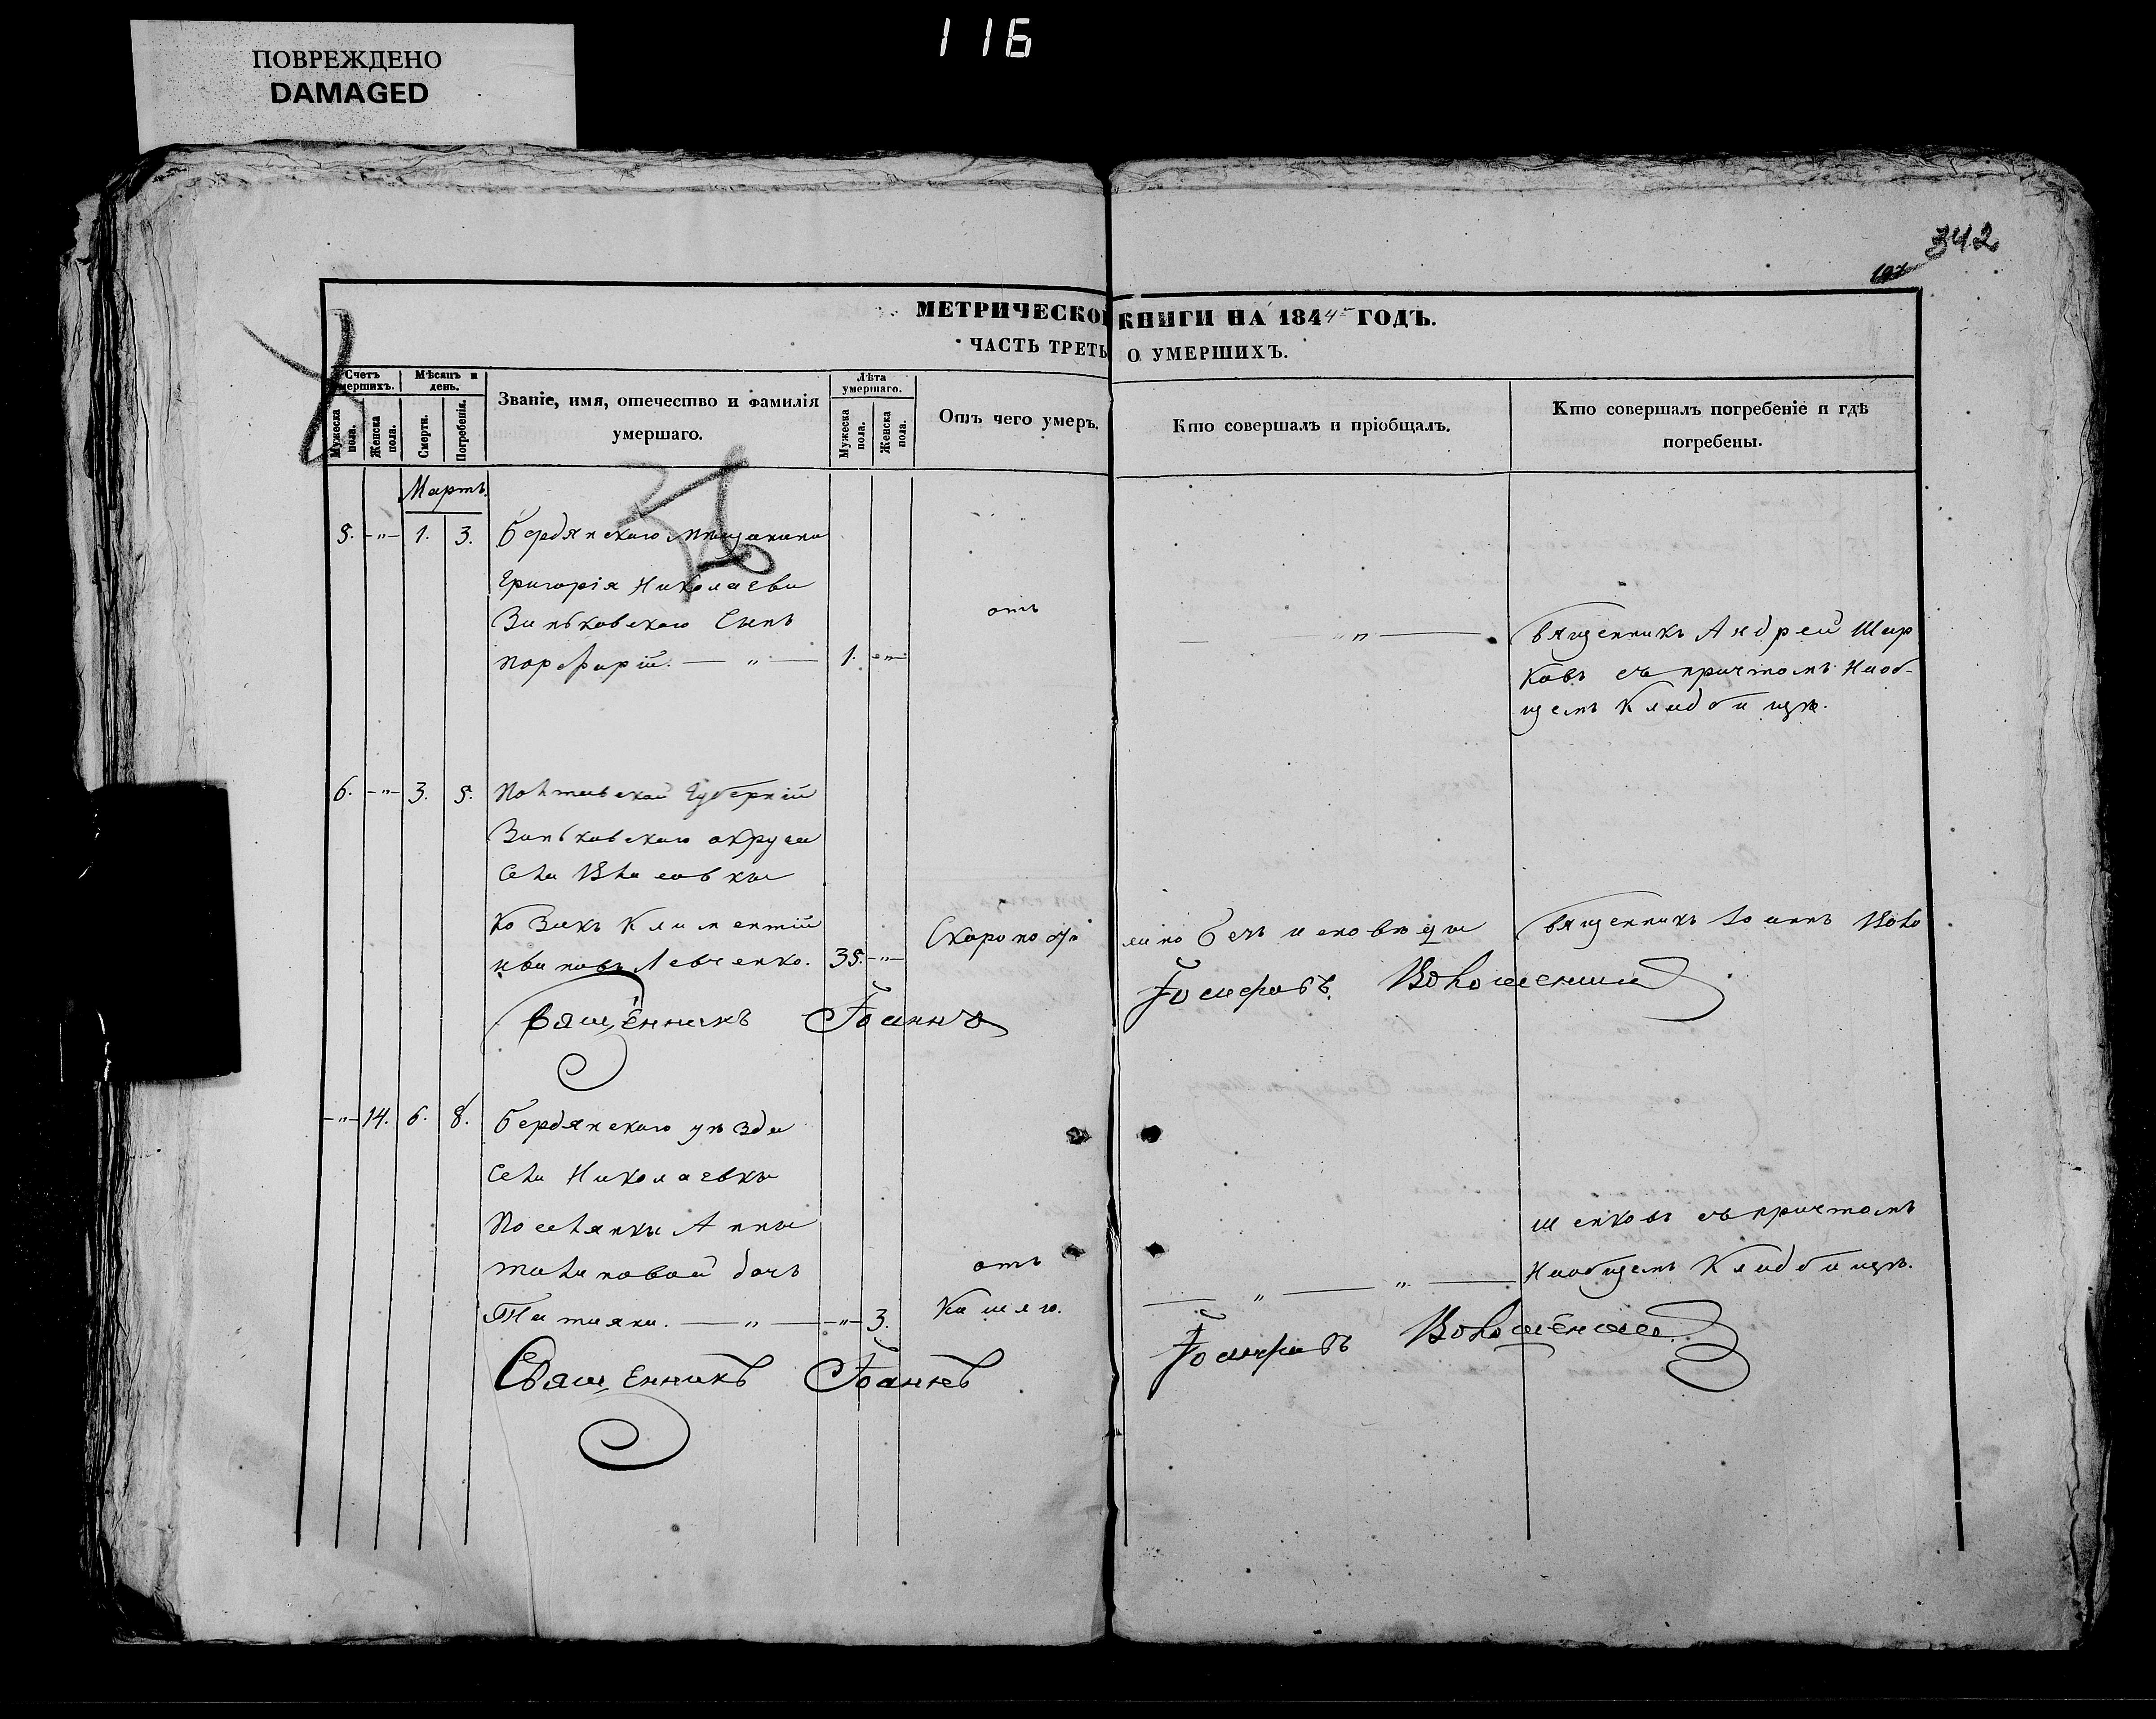 116
ПОВРЕЖДЕНО
DAMAGED
342
МЕТРИЧЕСКО КНИГИ НА 1844 ГОДЪ.
ЧАСТЬ ТРЕТЬ О УМЕРШИХЪ.
Счетъ умершихъ.
Мужеска пола.
Женска пола.
Мѣсяцъ и день.
Смерти.
Погребенія.
Званіе, имя, отечество и фамилія умершаго.
Лѣта умершаго.
Мужеска пола.
Женска пола.
Отъ чего умеръ.
Кто совершалъ и пріобщалъ.
Кто совершалъ погребеніе и гдѣ погребены.
Мартъ.
5. -"- 1. 3. Бердянскаго мѣщанина
Григорія Николаева
Зиньковскаго сынъ
Порфирій. — " — 1. -"-
отъ
— " —
Священникъ Андрей Шар
ковъ съ причтомъ На об-
щемъ Кладбищѣ.
6. -"- 3. 5. Полтавской Губерніи
Зиньковскаго округа
Села
Козакъ Климентій
Ивановъ Левченко. 35. -"-
Скоропо
безъ исповѣди
Священникъ Іоаннъ Воло
Священникъ Іоаннъ
-"- 14. 6. 8. Бердянскаго уѣзда
Села Николаевки
Поселянки Анны
дочь
Татіяна. — " — -"- 3.
отъ
Кашлю.
— " — " —
шенковъ съ причтомъ
На общемъ Кладбищѣ.
Священникъ Іоаннъ